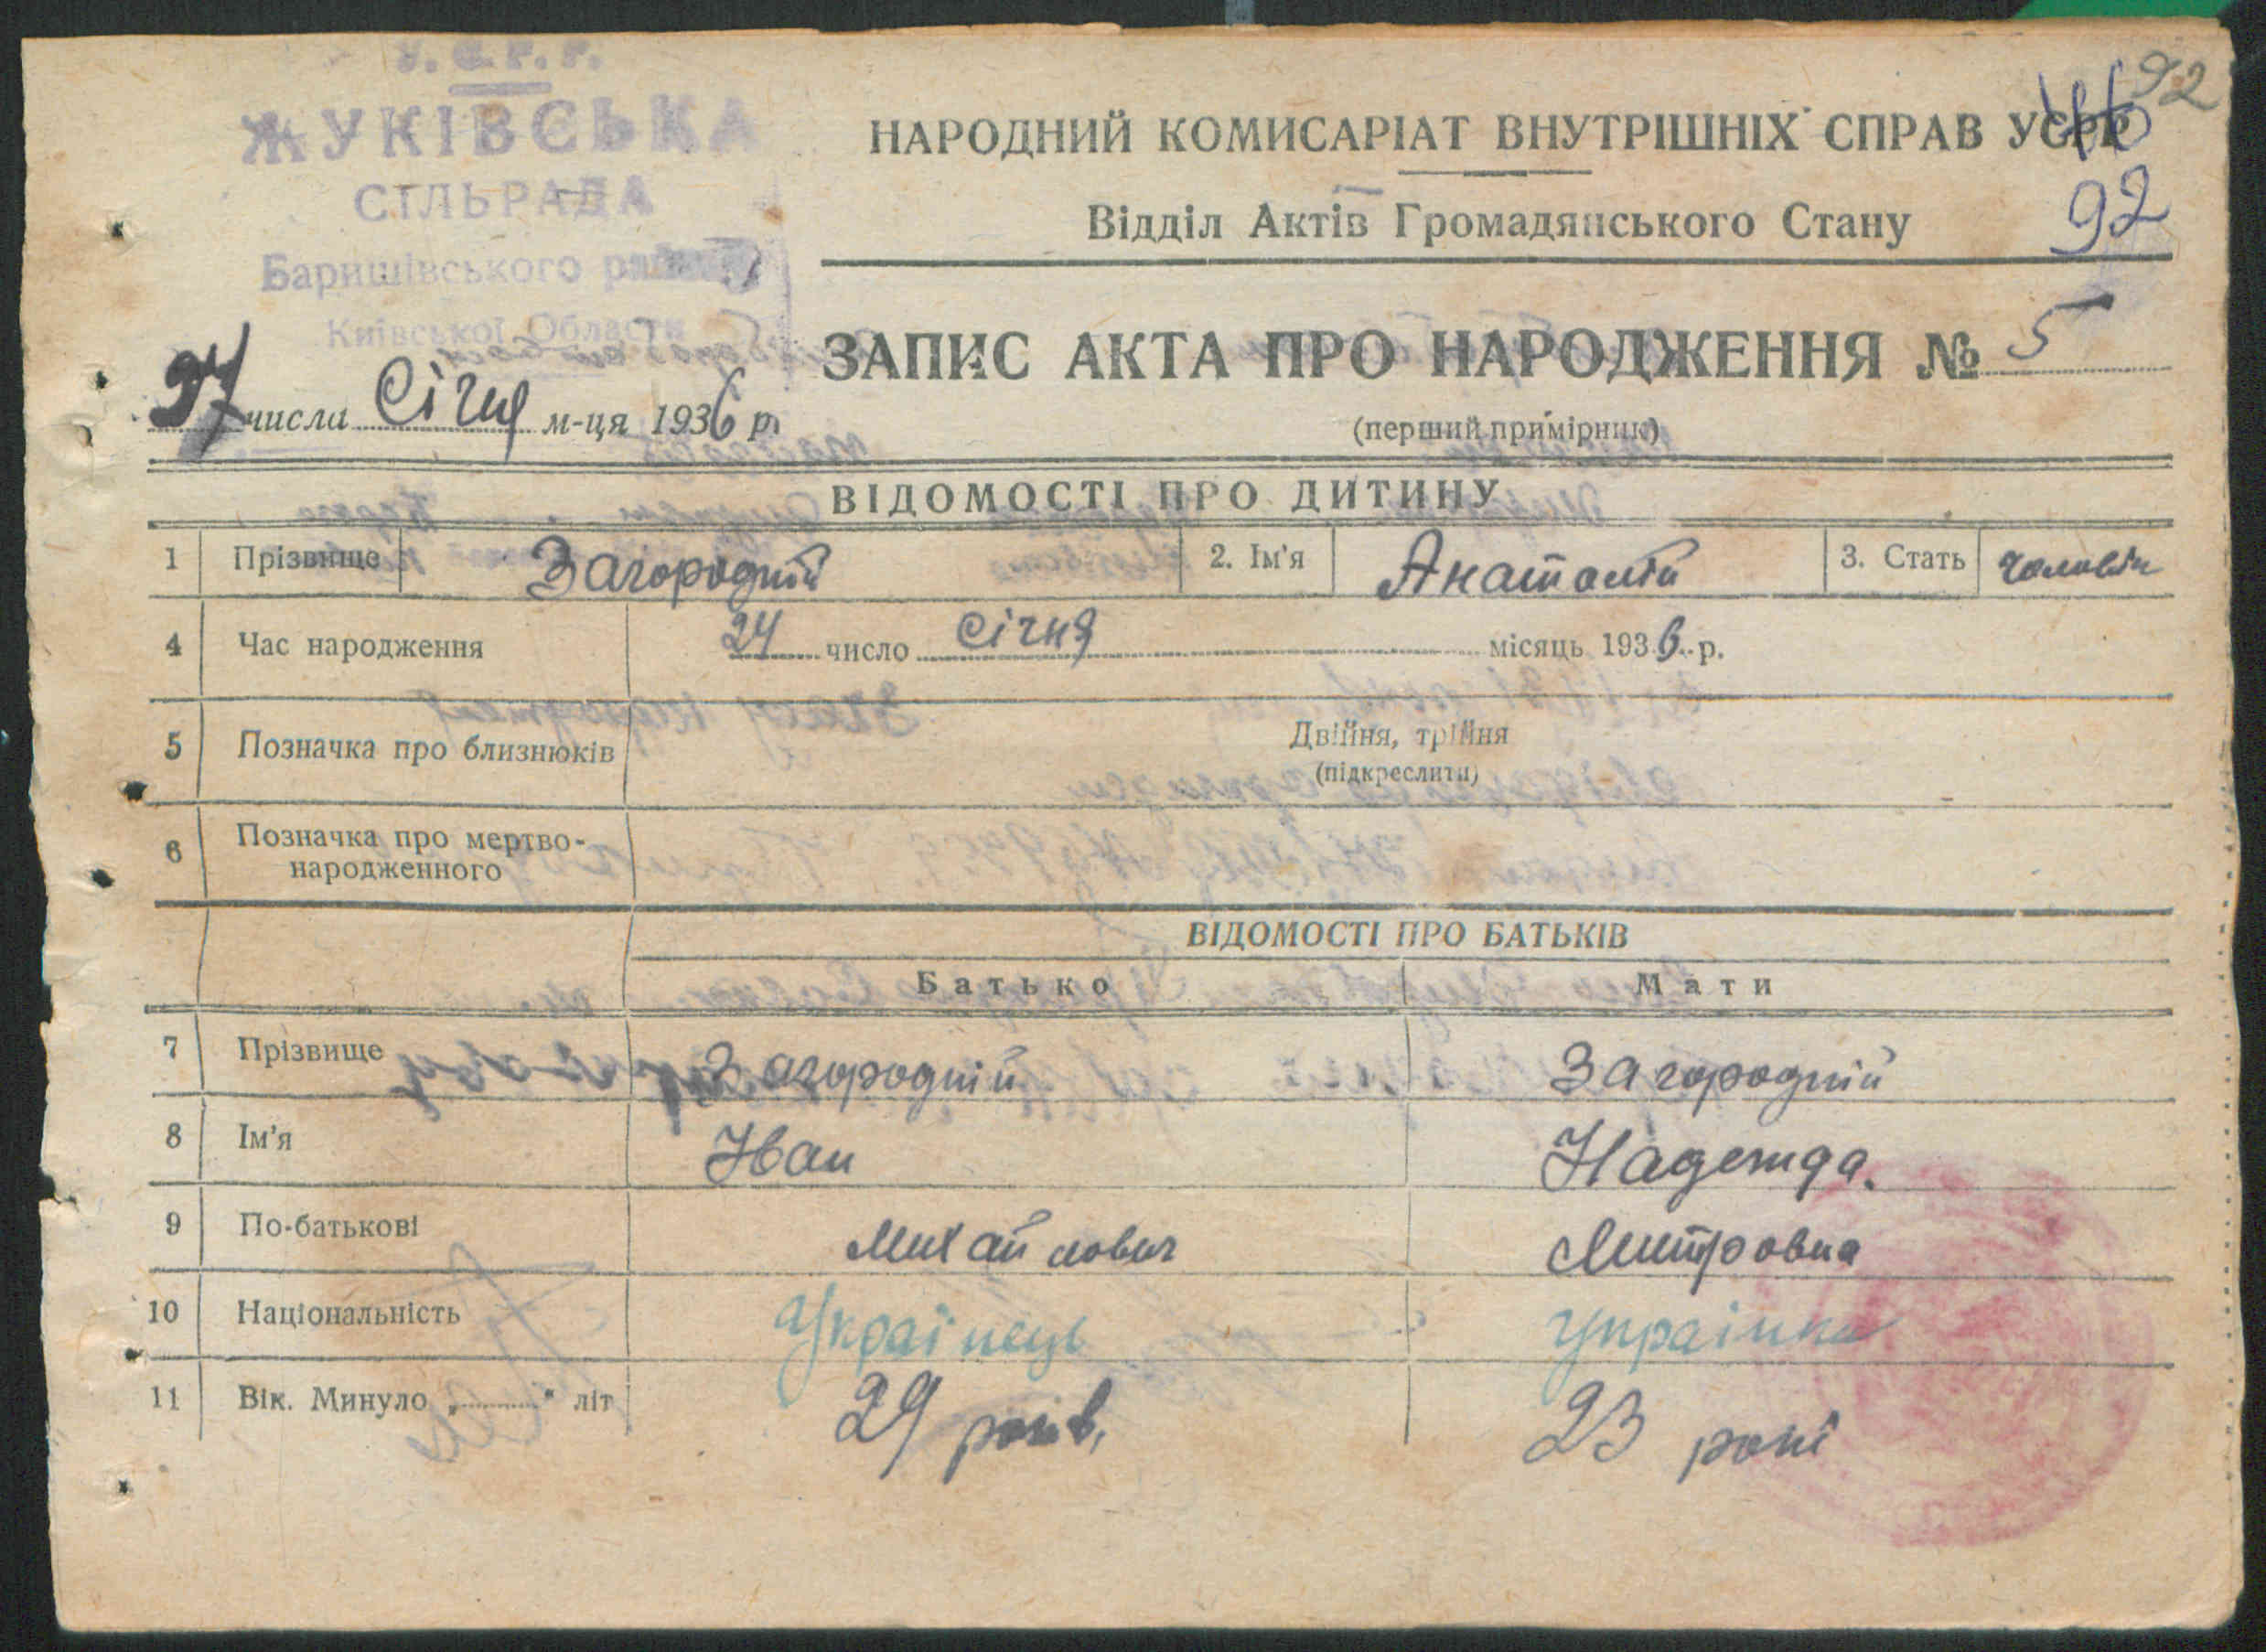 У.С.Р.Р.
ЖУКІВСЬКА
СІЛЬРАДА
Баришівського району
Київської Области
92
НАРОДНИЙ КОМИСАРІАТ ВНУТРІШНІХ СПРАВ УСРР
Відділ Актів Громадянського Стану
92
ЗАПИС АКТА ПРО НАРОДЖЕННЯ № 5
27 числа Січня м-ця 1936 р.
(перший примірник)
ВІДОМОСТІ ПРО ДИТИНУ
1 Прізвище Загородній 2. Ім'я Анатолій 3. Стать чоловіч
4 Час народження 24 число Січня місяць 1936 р.
5 Позначка про близнюків Двійня, трійня
(підкреслити)
6 Позначка про мертво-
народженного
ВІДОМОСТІ ПРО БАТЬКІВ
Батько Мати
7 Прізвище Загородній Загородній
8 Ім'я Іван Надежда.
9 По-батькові Михайлович Митровна
10 Національність Українець Українка
11 Вік. Минуло „ " літ 29 років, 23 рокі